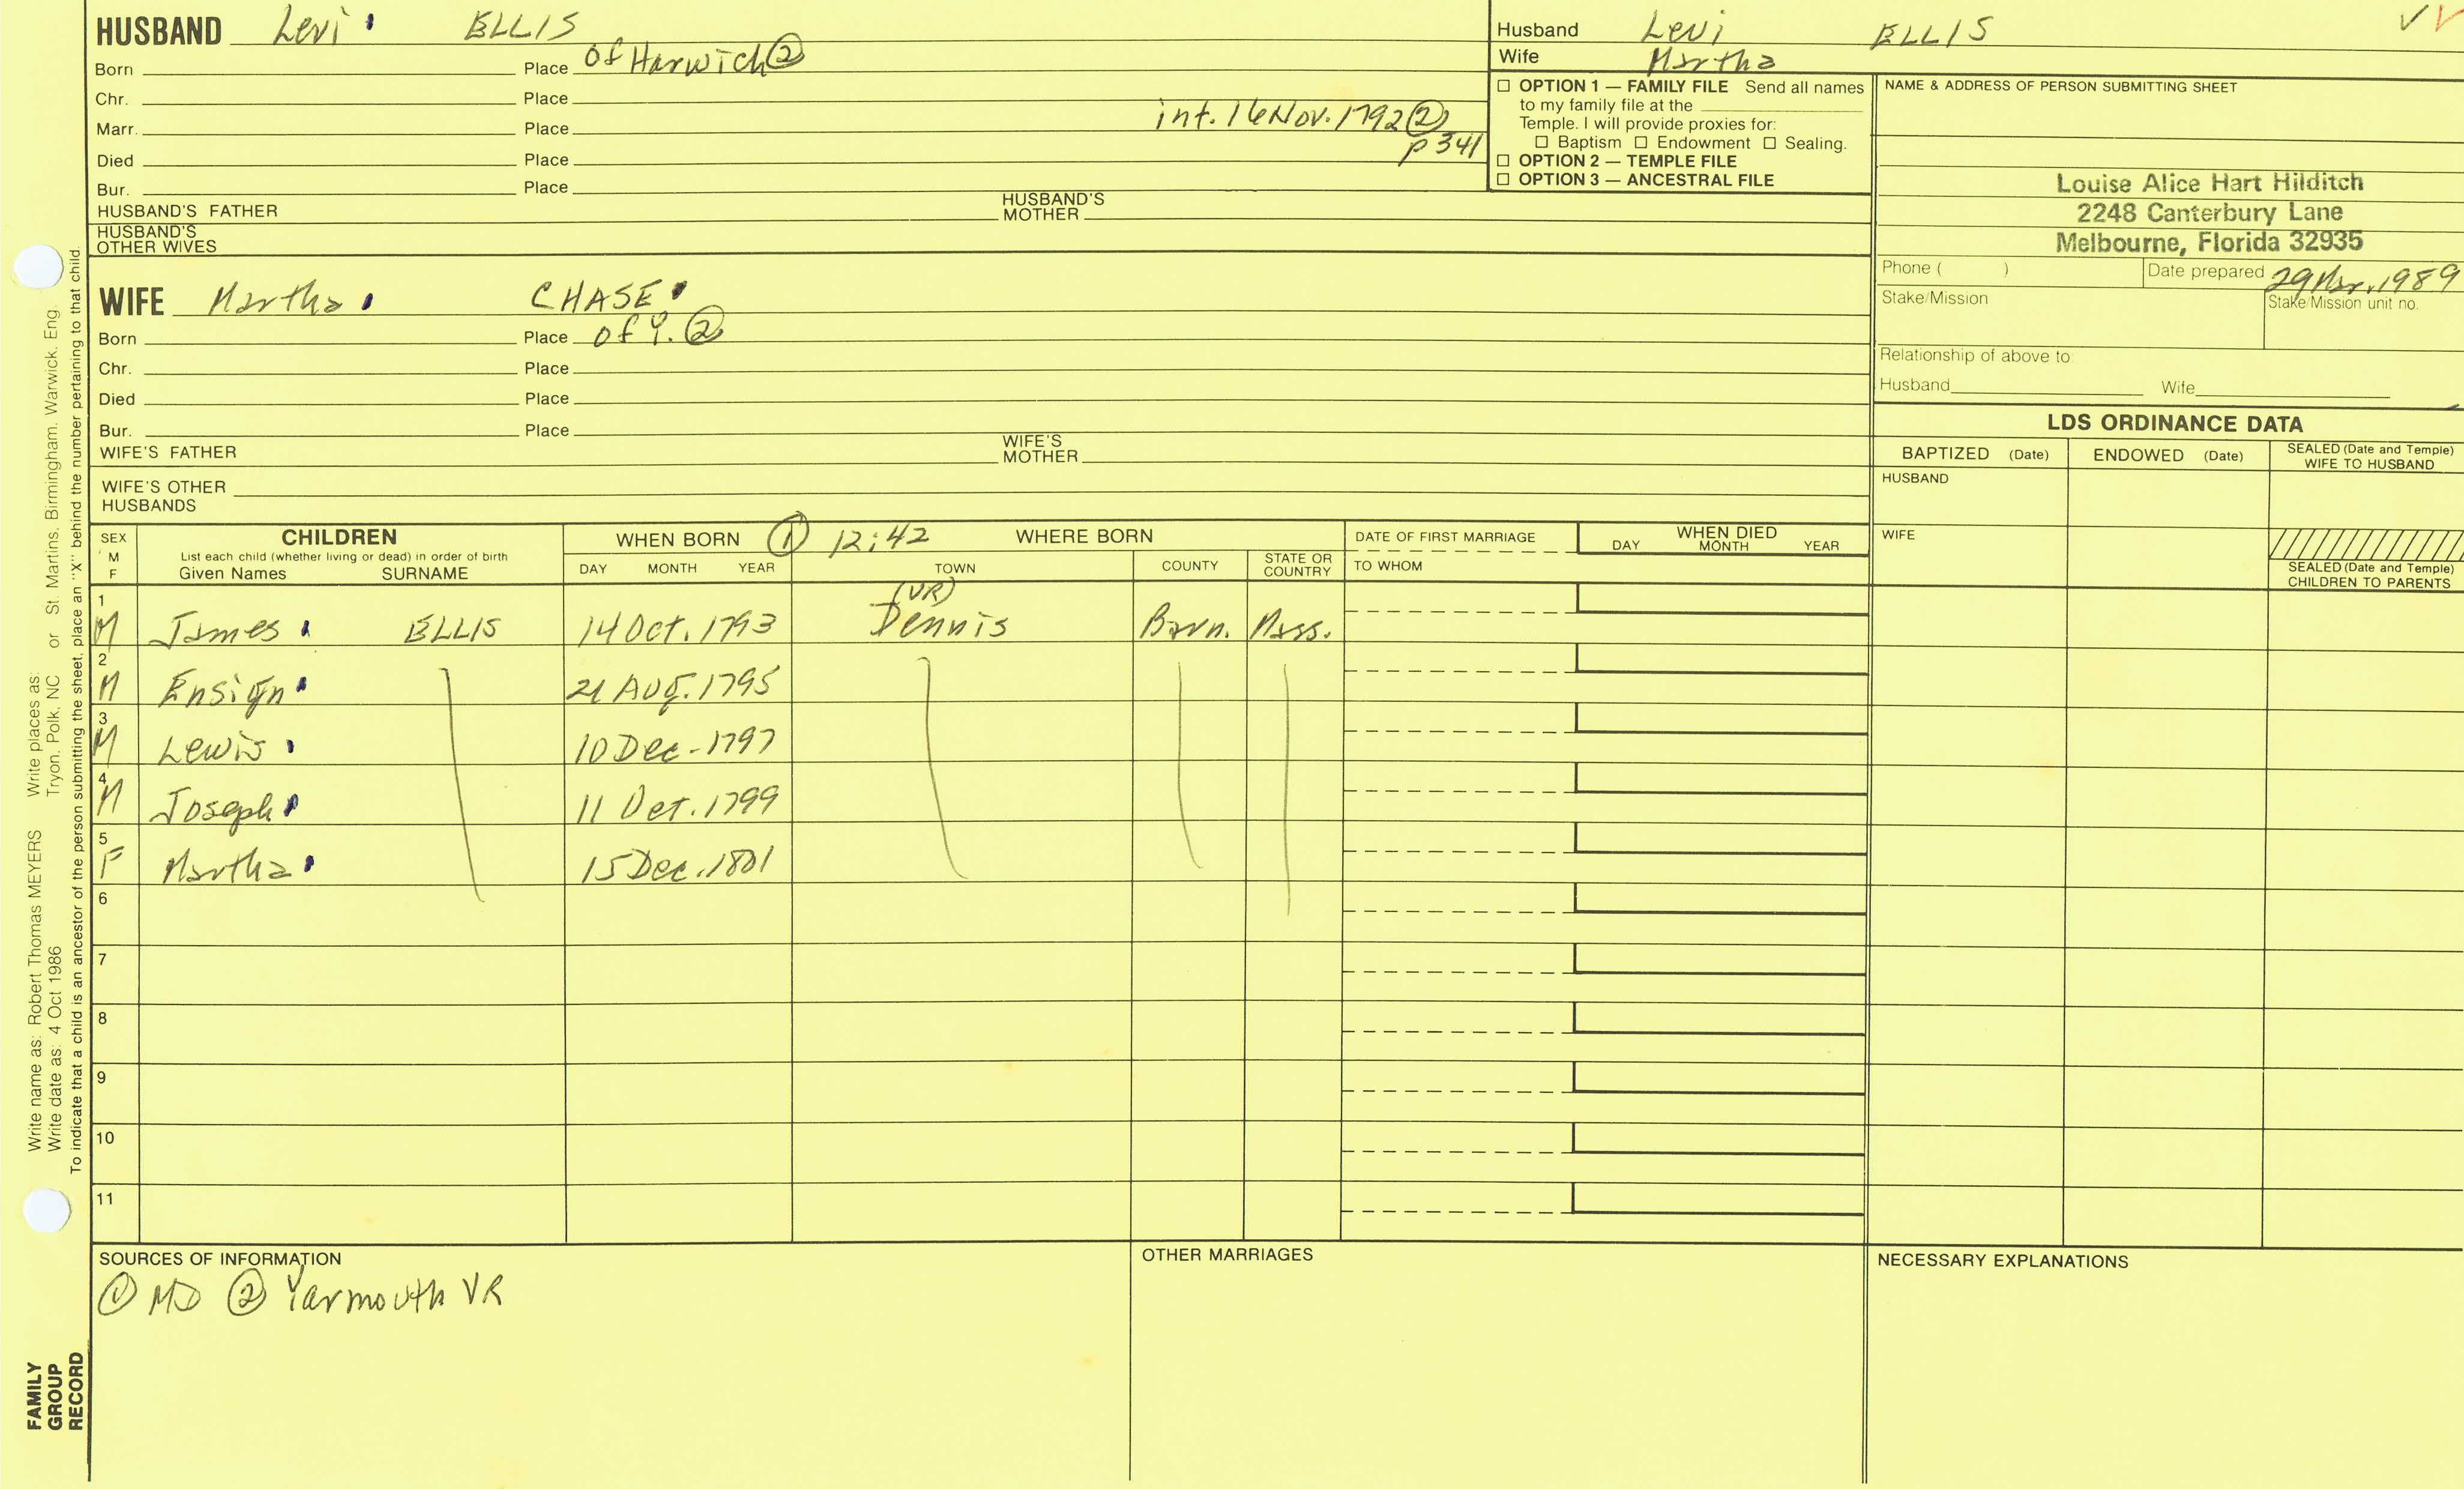 HUSBAND Levi ELLIS
Born Place of Harwich ②
Chr. Place
Marr. Place int. 16 Nov. 1792 ②
p 341
Died Place
Bur. Place
HUSBAND'S FATHER HUSBAND'S MOTHER
HUSBAND'S OTHER WIVES
WIFE Martha CHASE
Born Place of Y. ②
Chr. Place
Died Place
Bur. Place
WIFE'S FATHER WIFE'S MOTHER
WIFE'S OTHER HUSBANDS
Husband Levi ELLIS
Wife Martha
☐ OPTION 1 — FAMILY FILE Send all names
to my family file at the
Temple. I will provide proxies for:
☐ Baptism ☐ Endowment ☐ Sealing.
☐ OPTION 2 — TEMPLE FILE
☐ OPTION 3 — ANCESTRAL FILE
NAME & ADDRESS OF PERSON SUBMITTING SHEET
Louise Alice Hart Hilditch
2248 Canterbury Lane
Melbourne, Florida 32935
Phone ( ) Date prepared 29 Mar. 1989
Stake/Mission Stake/Mission unit no.
Relationship of above to:
Husband Wife
LDS ORDINANCE DATA
BAPTIZED (Date) ENDOWED (Date) SEALED (Date and Temple) WIFE TO HUSBAND
HUSBAND
WIFE
SEALED (Date and Temple) CHILDREN TO PARENTS
SEX M F CHILDREN WHEN BORN ① 12:42 WHERE BORN DATE OF FIRST MARRIAGE WHEN DIED
List each child (whether living or dead) in order of birth
Given Names SURNAME DAY MONTH YEAR TOWN COUNTY STATE OR COUNTRY TO WHOM DAY MONTH YEAR
(VR)
1 M James ELLIS 14 Oct. 1793 Dennis Barn. Mass.
2 M Ensign 21 Aug. 1795
3 M Lewis 10 Dec - 1797
4 M Joseph 11 Oct. 1799
5 F Martha 15 Dec. 1801
6
7
8
9
10
11
SOURCES OF INFORMATION
① MD ② Yarmouth VR
OTHER MARRIAGES
NECESSARY EXPLANATIONS
Write name as: Robert Thomas MEYERS Write places as:
Write date as: 4 Oct 1986 Tryon, Polk, NC or St. Martins, Birmingham, Warwick, Eng.
To indicate that a child is an ancestor of the person submitting the sheet, place an "X" behind the number pertaining to that child.
FAMILY
GROUP
RECORD